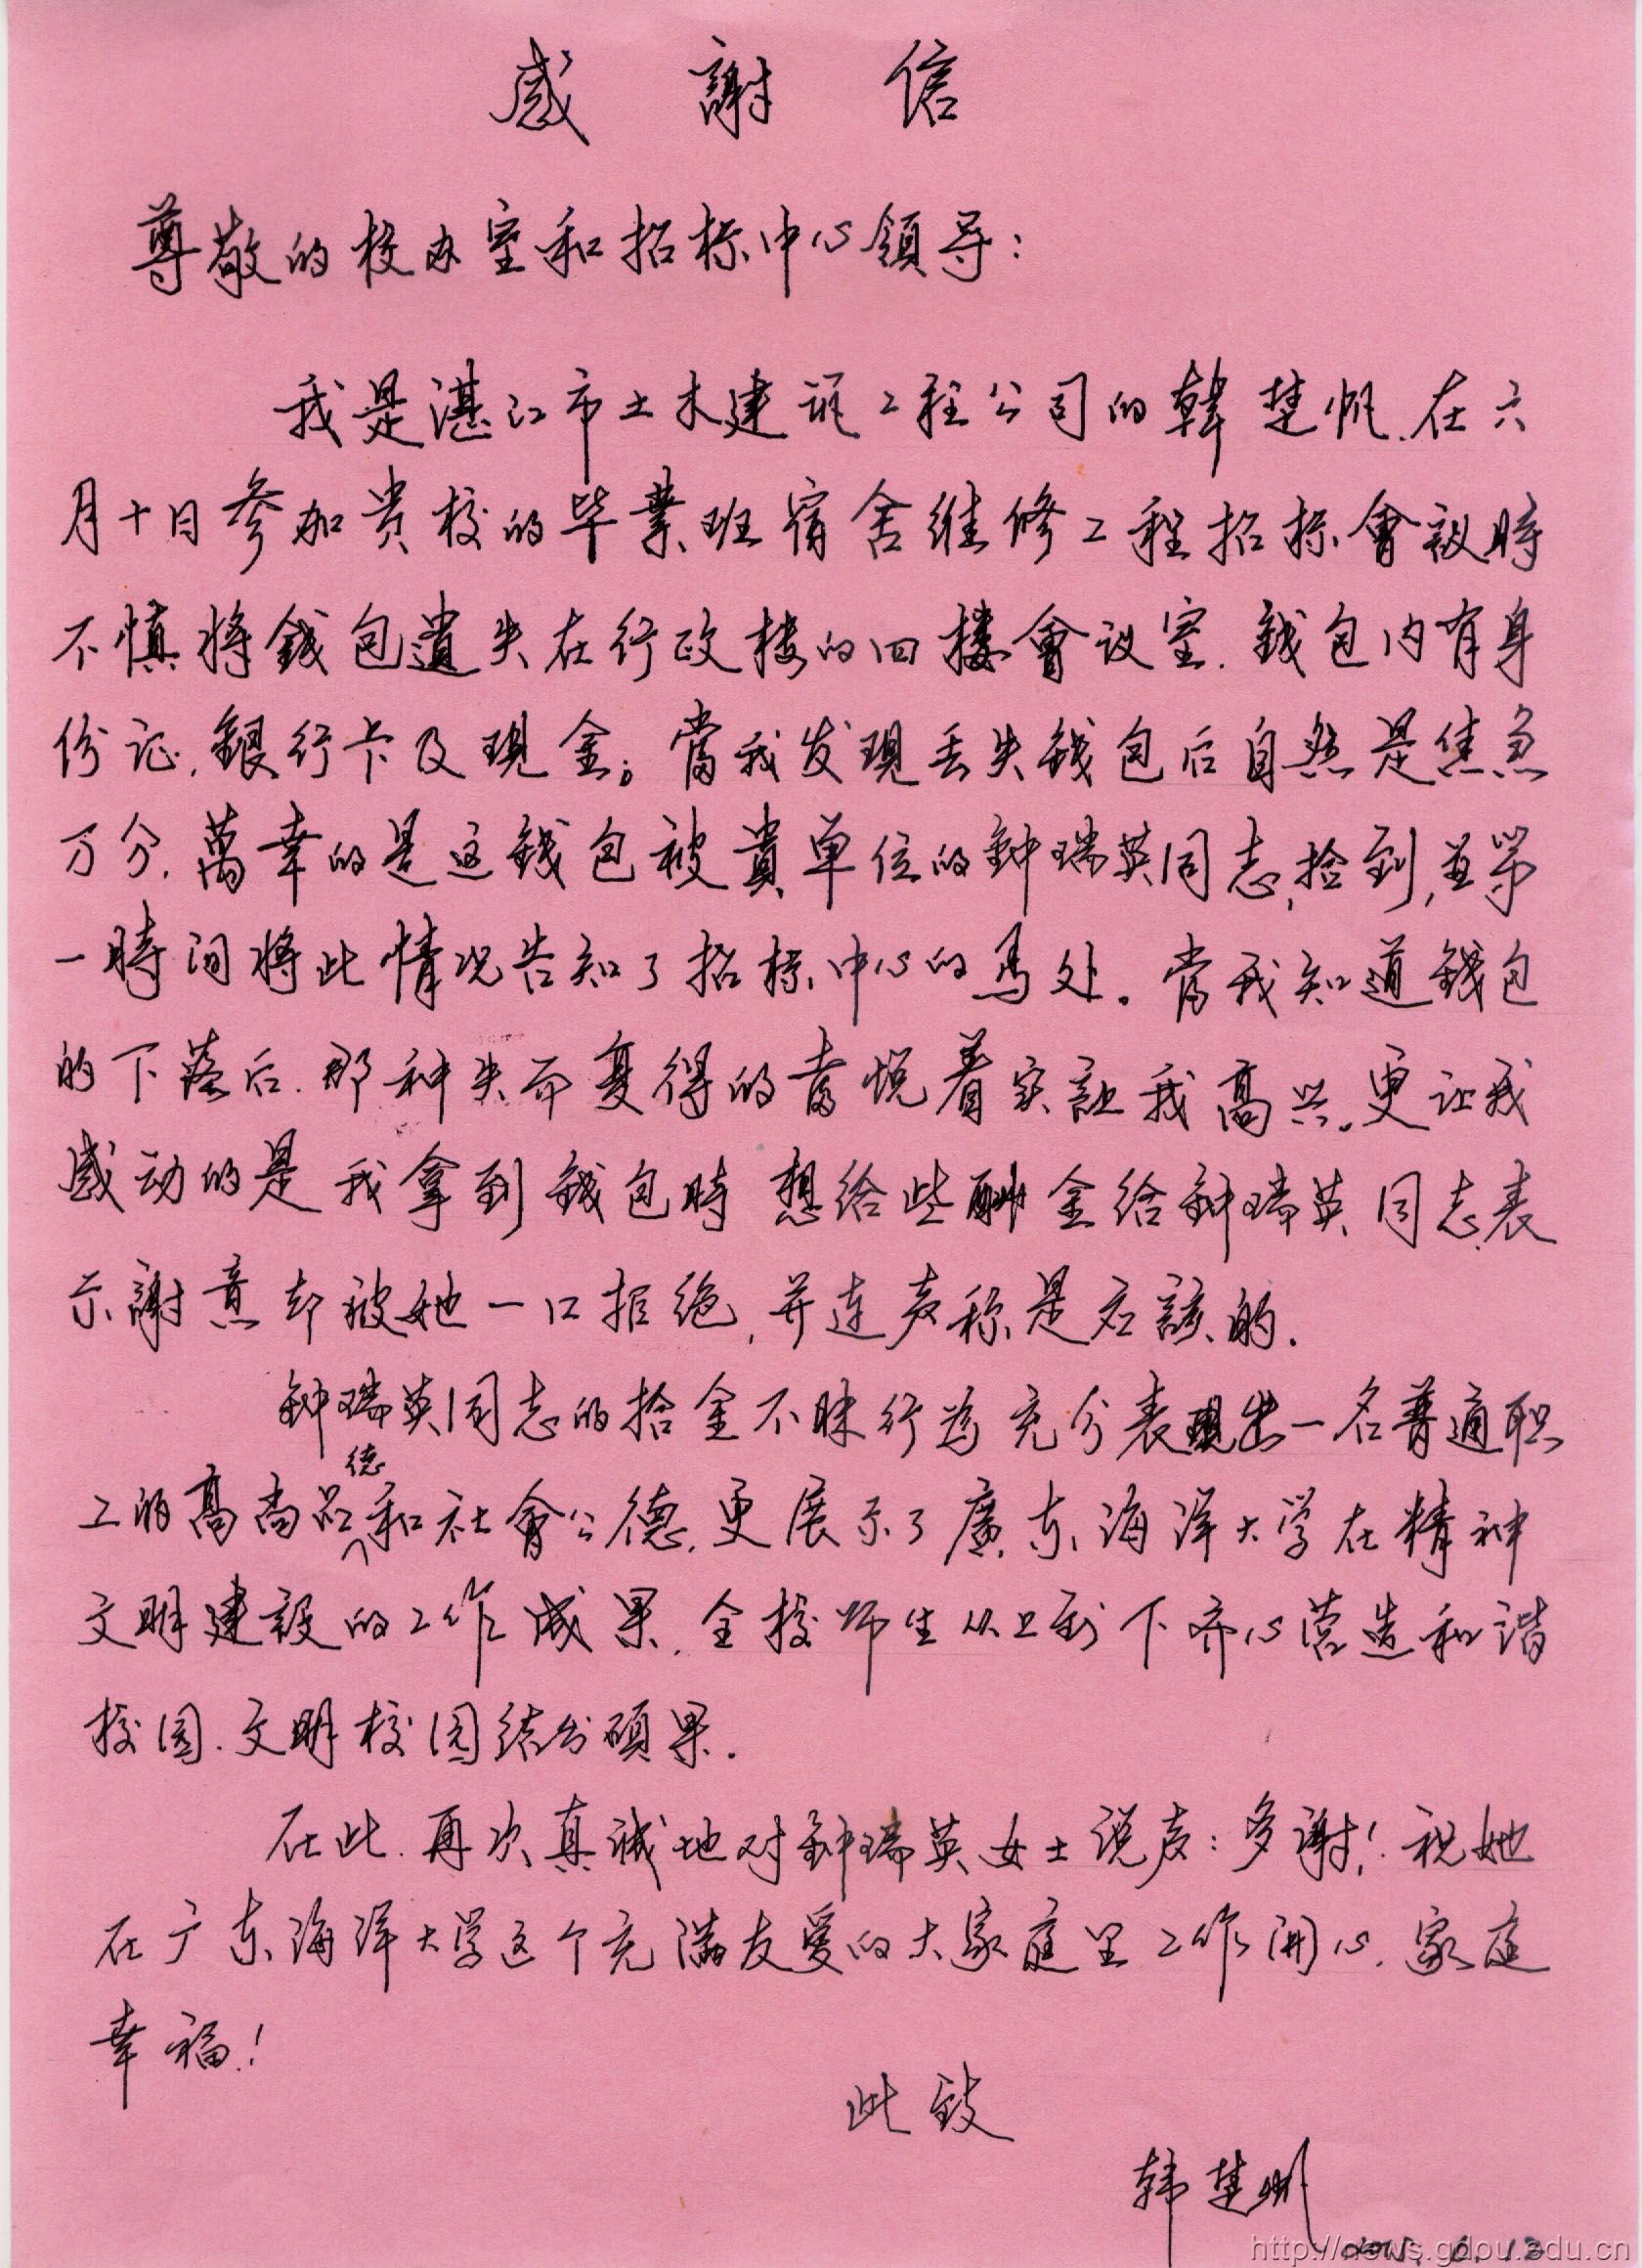 感謝信
尊敬的校办室和招标中心領导：
我是湛江市土木建筑工程公司的韓楚帆.在六
月十日参加贵校的毕業班宿舍维修工程招标會議時
不慎将錢包遺失在行政楼的四楼會议室.錢包内有身
份证.銀行卡及現金。當我发現丢失錢包后自然是焦急
万分.萬幸的是这錢包被貴单位的鈡瑞英同志拾到,並第
一時间将此情况告知了招标中心的马处。當我知道錢包
的下落后.那种失而复得的喜悦着实讓我高兴。更让我
感动的是我拿到錢包時想给些酬金给鈡瑞英同志表
示謝意却被她一口拒绝,并连声称是应該的.
鈡瑞英同志的拾金不昧行为充分表現出一名普通职
工的高尚品德和社會公德.更展示了廣东海洋大学在精神
文明建設的工作成果.全校师生从上到下齐心营造和谐
校园.文明校园结出硕果.
在此.再次真诚地对鈡瑞英女士说声：多謝！祝她
在广东海洋大学这个充满友爱的大家庭里工作開心.家庭
幸福！
此致
韩楚
6.12
http://news.gdou.edu.cn